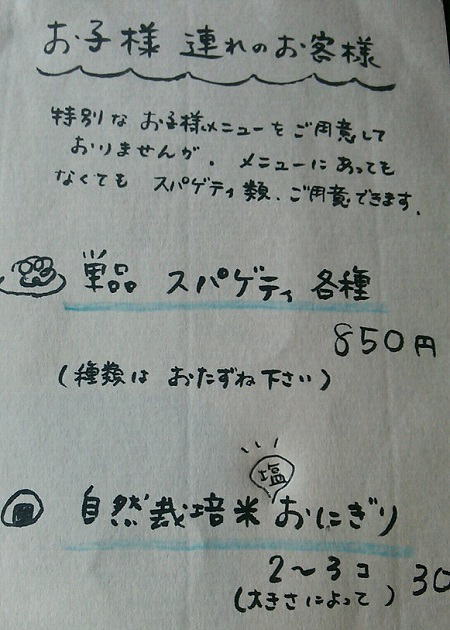 お子様 連れのお客様
特別な お子様メニューをご用意して
おりませんが、メニューにあっても
なくても スパゲティ類、ご用意できます。
単品 スパゲティ 各種
850円
(種類は おたずね下さい)
塩
自然栽培米 おにぎり
2〜3コ
(大きさによって) 30